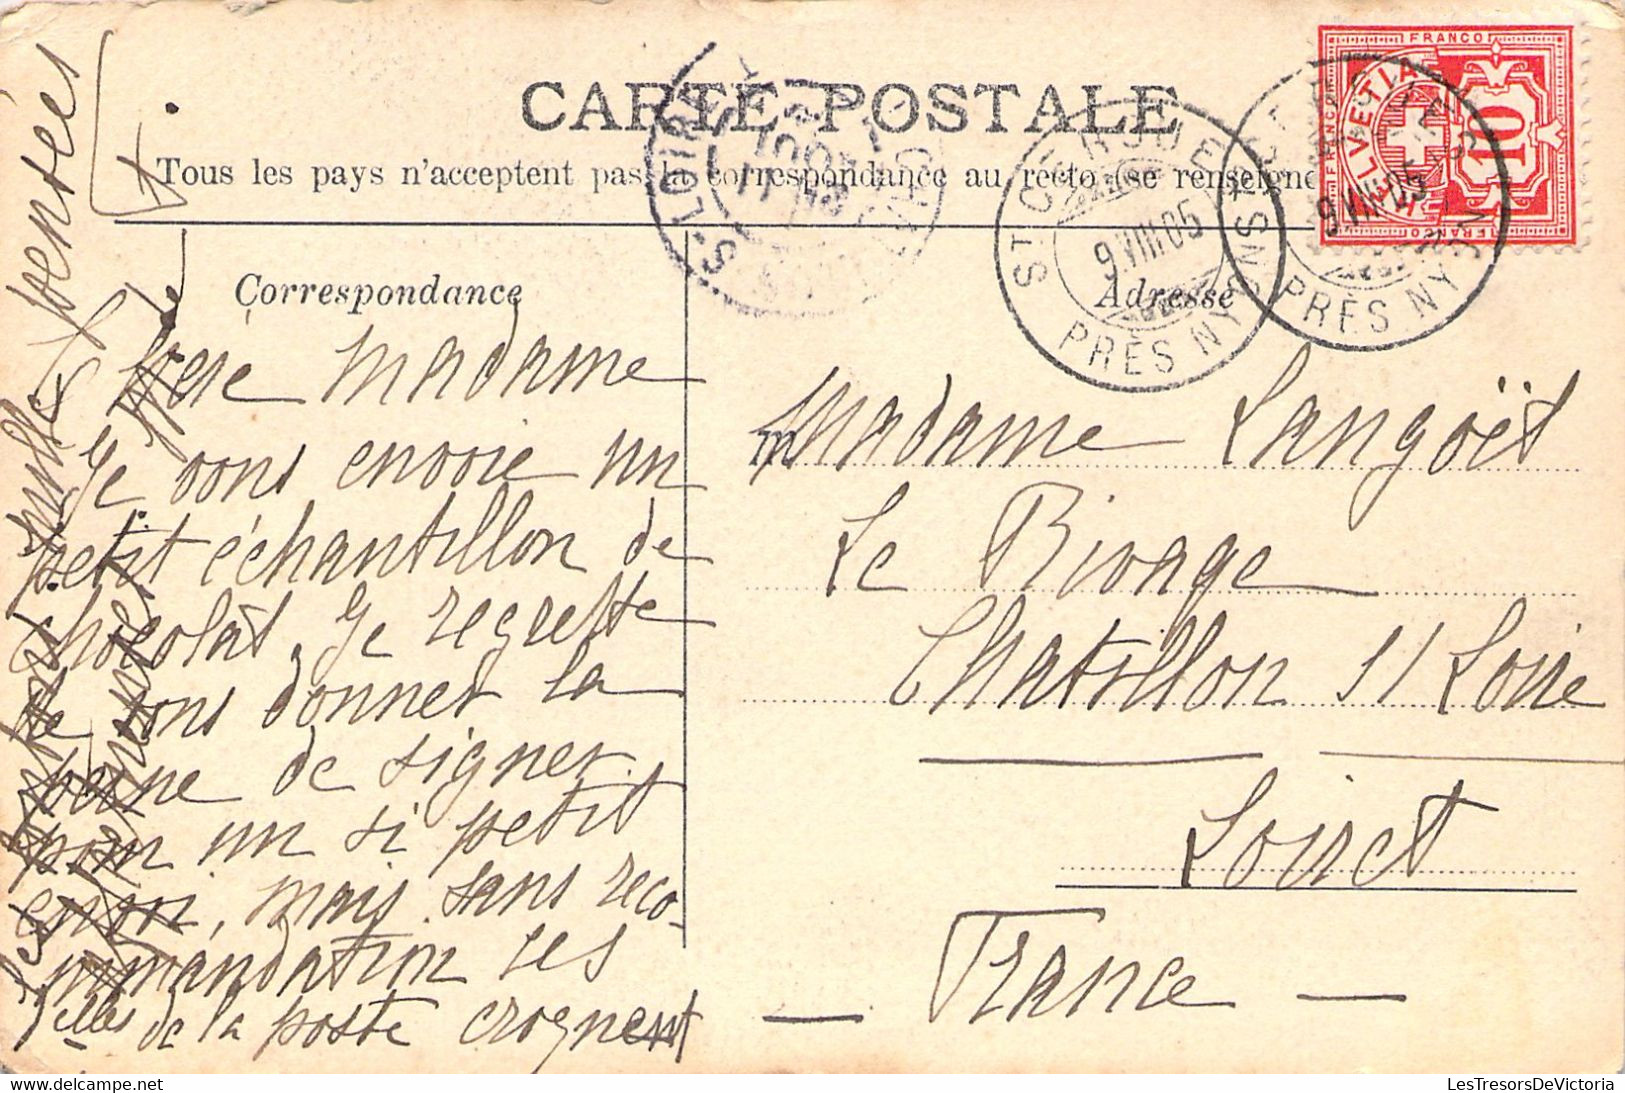 CARTE POSTALE
Tous les pays n'acceptent pas la correspondance au recto (se renseigne
Correspondance
Adresse
FRANCO
HELVETIA
10
FRANCO
ST CERGUES
9.VIII.05
PRÈS NYON
9.VIII.05
PRÈS NYON
S. LOIRE
Chère Madame
Je vous envoie un
petit échantillon de
chocolât, je regrette
de vous donner la
peine de signer
pour un si petit
envoi, mais sans reco-
mmandation les
Delles de la poste croquent
Mille pensées
Madame Langöet
Le Rivage
Chatillon s/ Loire
Loiret
France
LesTresorsDeVictoria